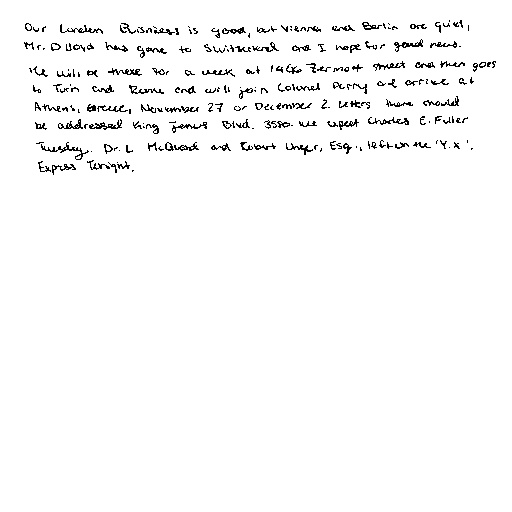 Our London Business is good, but Vienna and Berlin are quiet,
Mr. D Lloyd has gone to Switzerland and I hope for good news.
He will be there for a week at 1496 Zermott street and then goes
to Turin and Rome and will join Colonel Parry and arrive at
Athens, Greece, November 27 or December 2. Letters there should
be addressed King James Blvd. 3580. We expect Charles E. Fuller
Tuesday. Dr. L McQuaid and Robert Unger, Esq., left on the 'Y.X',
Express Tonight.